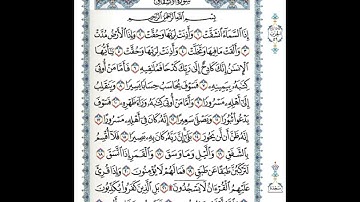 سُورَةُ الانشِقَاقِ
بِسْمِ اللَّهِ الرَّحْمَٰنِ الرَّحِيمِ
إِذَا السَّمَاءُ انشَقَّتْ ١ وَأَذِنَتْ لِرَبِّهَا وَحُقَّتْ ٢ وَإِذَا الْأَرْضُ مُدَّتْ
٣ وَأَلْقَتْ مَا فِيهَا وَتَخَلَّتْ ٤ وَأَذِنَتْ لِرَبِّهَا وَحُقَّتْ ٥ يَٰأَيُّهَا
الْإِنسَٰنُ إِنَّكَ كَادِحٌ إِلَىٰ رَبِّكَ كَدْحًا فَمُلَٰقِيهِ ٦ فَأَمَّا مَنْ أُوتِيَ
كِتَٰبَهُ بِيَمِينِهِ ٧ فَسَوْفَ يُحَاسَبُ حِسَابًا يَسِيرًا ٨ وَيَنقَلِبُ
إِلَىٰ أَهْلِهِ مَسْرُورًا ٩ وَأَمَّا مَنْ أُوتِيَ كِتَٰبَهُ وَرَاءَ ظَهْرِهِ ١٠ فَسَوْفَ
يَدْعُوا ثُبُورًا ١١ وَيَصْلَىٰ سَعِيرًا ١٢ إِنَّهُ كَانَ فِي أَهْلِهِ مَسْرُورًا ١٣
إِنَّهُ ظَنَّ أَن لَّن يَحُورَ ١٤ بَلَىٰ إِنَّ رَبَّهُ كَانَ بِهِ بَصِيرًا ١٥ فَلَا أُقْسِمُ
بِالشَّفَقِ ١٦ وَاللَّيْلِ وَمَا وَسَقَ ١٧ وَالْقَمَرِ إِذَا اتَّسَقَ ١٨
لَتَرْكَبُنَّ طَبَقًا عَن طَبَقٍ ١٩ فَمَا لَهُمْ لَا يُؤْمِنُونَ ٢٠ وَإِذَا قُرِئَ
عَلَيْهِمُ الْقُرْءَانُ لَا يَسْجُدُونَ ۩ ٢١ بَلِ الَّذِينَ كَفَرُوا يُكَذِّبُونَ